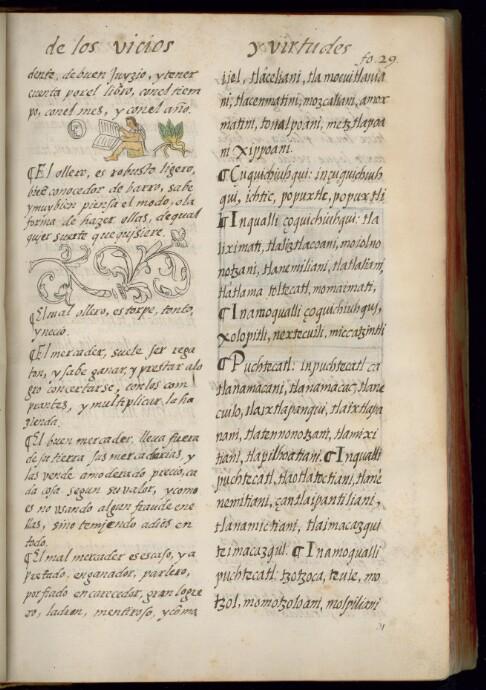 de los vicios
y virtudes
fo. 29.
dente, de buen Juyzio, y tener
cuenta por el libro, con el tiem
po, con el mes, y con el año.
¶ El ollero, es robusto ligero,
buē conocedor de barro, sabe
y muy bien piensa el modo, o la
forma de hazer ollas, de qual
quier suerte que quisiere.
¶ El mal ollero, es torpe, tonto,
y necio.
¶ El mercader, suele ser rega
ton, y sabe ganar, y prestar a lo
gro concertarse, con los com
prantes, y multiplicar la ha
zienda.
¶ El buen mercader, lleva fuera
de sa tierra sus mercaderias, y
las vende a moderado precio, ca
da cosa segun su valor, y como
es no usando algun fraude ene
llas, sino temiendo adios en
todo.
¶ El mal mercader es escaso, y a
pretado, enganador, parlero,
porfiado encarecedor, gran logre
ro, ladron, mentiroso, y cōma
ixel, tlâceliani, tlamocuitlavia
ni, tlacemmatini, mozcaliani, amox
matini, tonalpoani, metztlapoa
ni Xippoani.
¶ Çuquichiuhqui: inçuquichiuh
qui, ichtic, popuxtic, popuxtli
¶ Inqualli çoquichiuhqui: tla
iiximati, tlaliztlacoani, moiolno
notzani, tlanemiliani, tlatlaliani,
tlatlama toltecatl, momaimati,
¶ Inamoqualli çoquichiuhqui,
xolopitli, nextecuili, miccatzintli
¶ Puchtecatl: inpuchtecatl ca
tlanamacani, tlanamacac, tlane
cuilo, tlaixtlapanqui, tlaixtlapa
nani, tlatennonotzani, tlamixi
tiani, tlapilhoatiani. ¶ Inqualli
puchtecatl, tlaotlatoctiani, tlane
nemitiani, çantlaipantiliani,
tlanamictiani, tlaimacazqui
teimacazqui. ¶ Inamoqualli
puchtecatl: tzotzoca, teuie, mo
tzol, momotzoloani, mospiliani